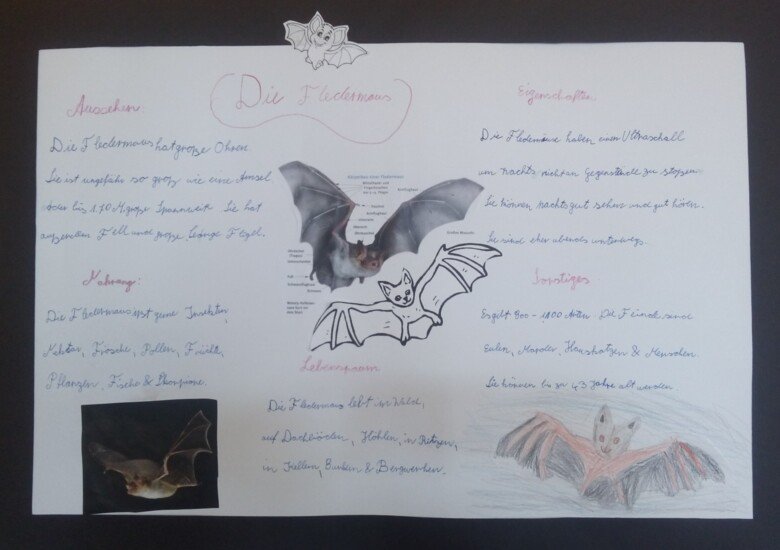 Die Fledermaus
Aussehen:
Die Fledermaus hat große Ohren.
Sie ist ungefähr so groß wie eine Amsel
oder bis 1.70 M. große Spannweite. Sie hat
außerdem Fell und große Flügel.
Nahrung:
Die Fledermaus isst gerne Insekten,
Nektar, Frösche, Pollen, Früchte,
Pflanzen, Fische & Skorpione.
Körperbau einer Fledermaus
Lebensraum
Die Fledermaus lebt im Wald,
auf Dachböden, Höhlen, in Ritzen,
in Kellern, Bunkern & Bergwerken.
Eigenschaften
Die Fledermäuse haben einen Ultraschall
um nachts nicht an Gegenstände zu stoßen.
Sie können nachts gut sehen und gut hören.
Sie sind eher abends unterwegs.
Sonstiges
Es gibt 900 - 1100 Arten. Die Feinde sind
Eulen, Marder, Hauskatzen & Menschen.
Sie können bis zu 43 Jahre alt werden.